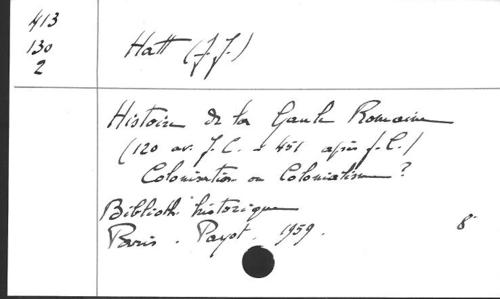 413
130
2
Hatt (J.J.)
Histoire de la Gaule Romaine
(120 av. J.C. à 451 après J.C.)
Colonisation ou Colonialisme ?
Biblioth. historique
Paris. Payot. 1959.
8°